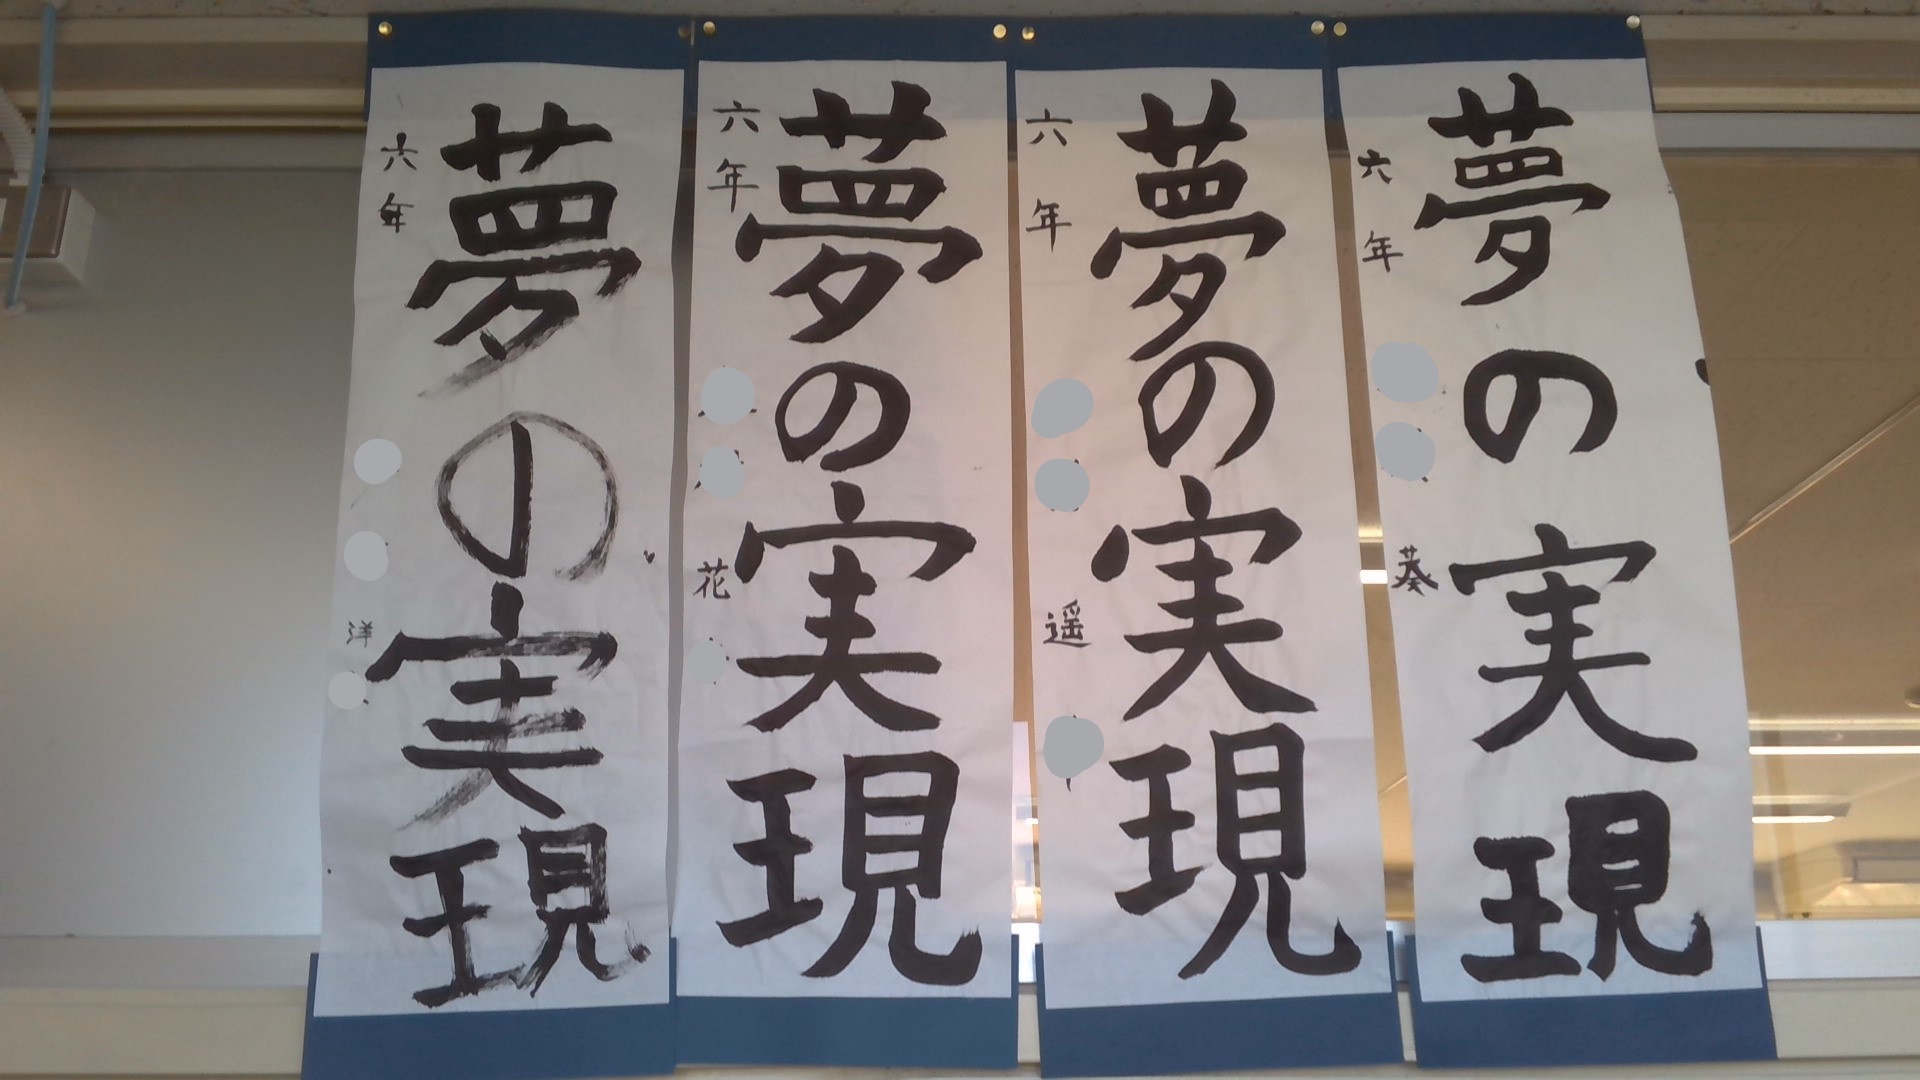 夢の実現
六年 葵
夢の実現
六年 遥
夢の実現
六年 花
夢の実現
六年 洋